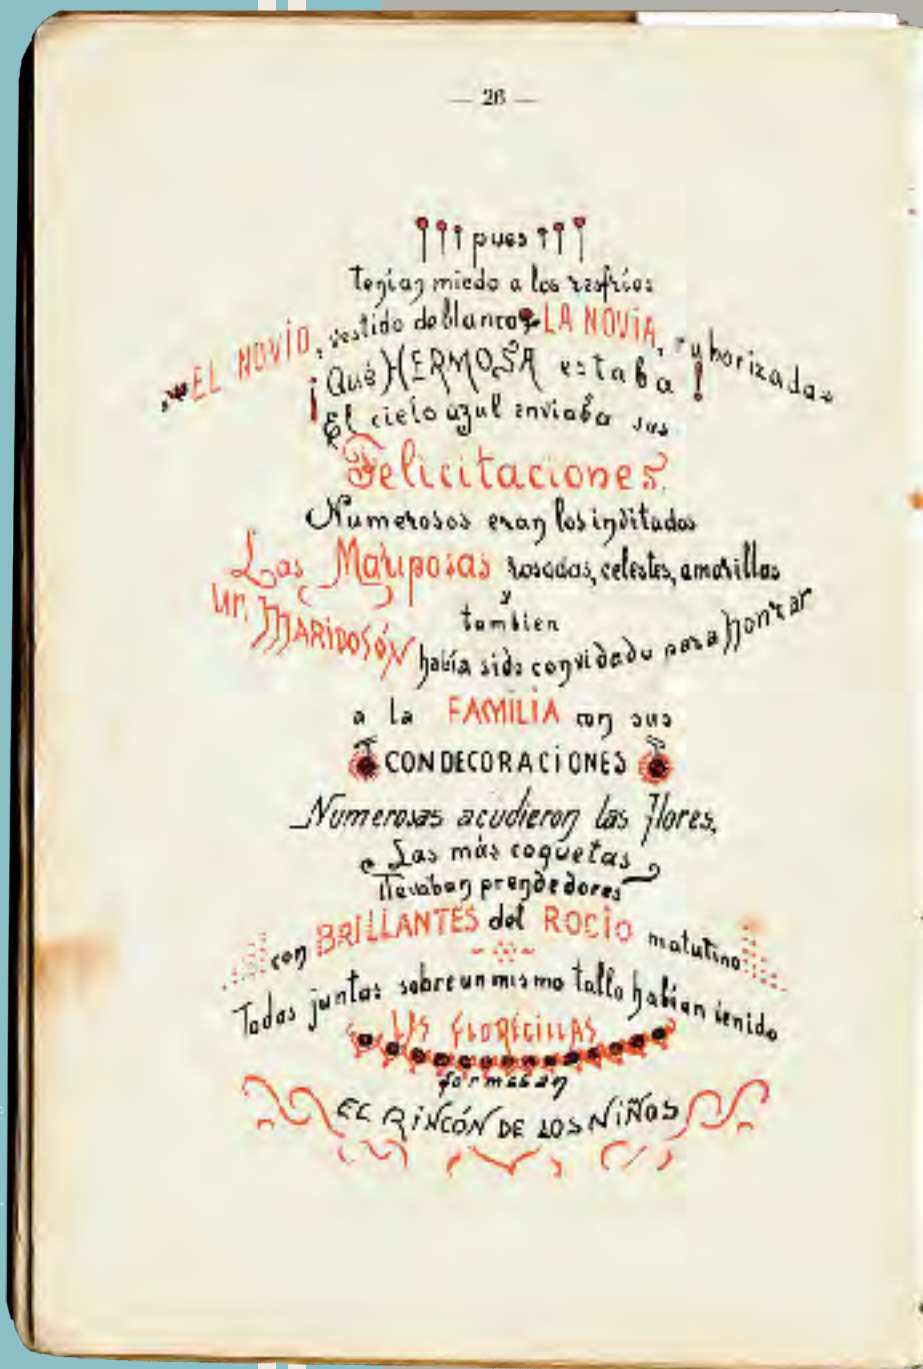 — 26 —
¡¡¡pues!!!
tenian miedo a los resfríos
EL NOVIO, vestido de blanco y LA NOVIA, ruborizada
¡Qué HERMOSA estaba!
El cielo azul enviaba sus
Felicitaciones.
Numerosos eran los invitados
Las Mariposas rosadas, celestes, amarillas
y
tambien
Un MARIPOSÓN había sido convidado para honrar
a la FAMILIA con sus
CONDECORACIONES
Numerosas acudieron las flores.
Las más coquetas
llevaban prendedores
con BRILLANTES del ROCIO matutino
Todas juntas sobre un mismo tallo habian venido
LAS FLORECILLAS
formaban
EL RINCÓN DE LOS NIÑOS